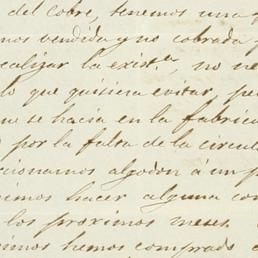 del cobre, tenemos una
mos vendida y no cobrada
ealizar la exist.ª, no ne
lo que quisiera evitar, pe
ue se hacia en la fabrica
por la falta de la circul
cionamos algodon á un p
imos hacer alguna con
los proximos meses.
imos hemos comprado